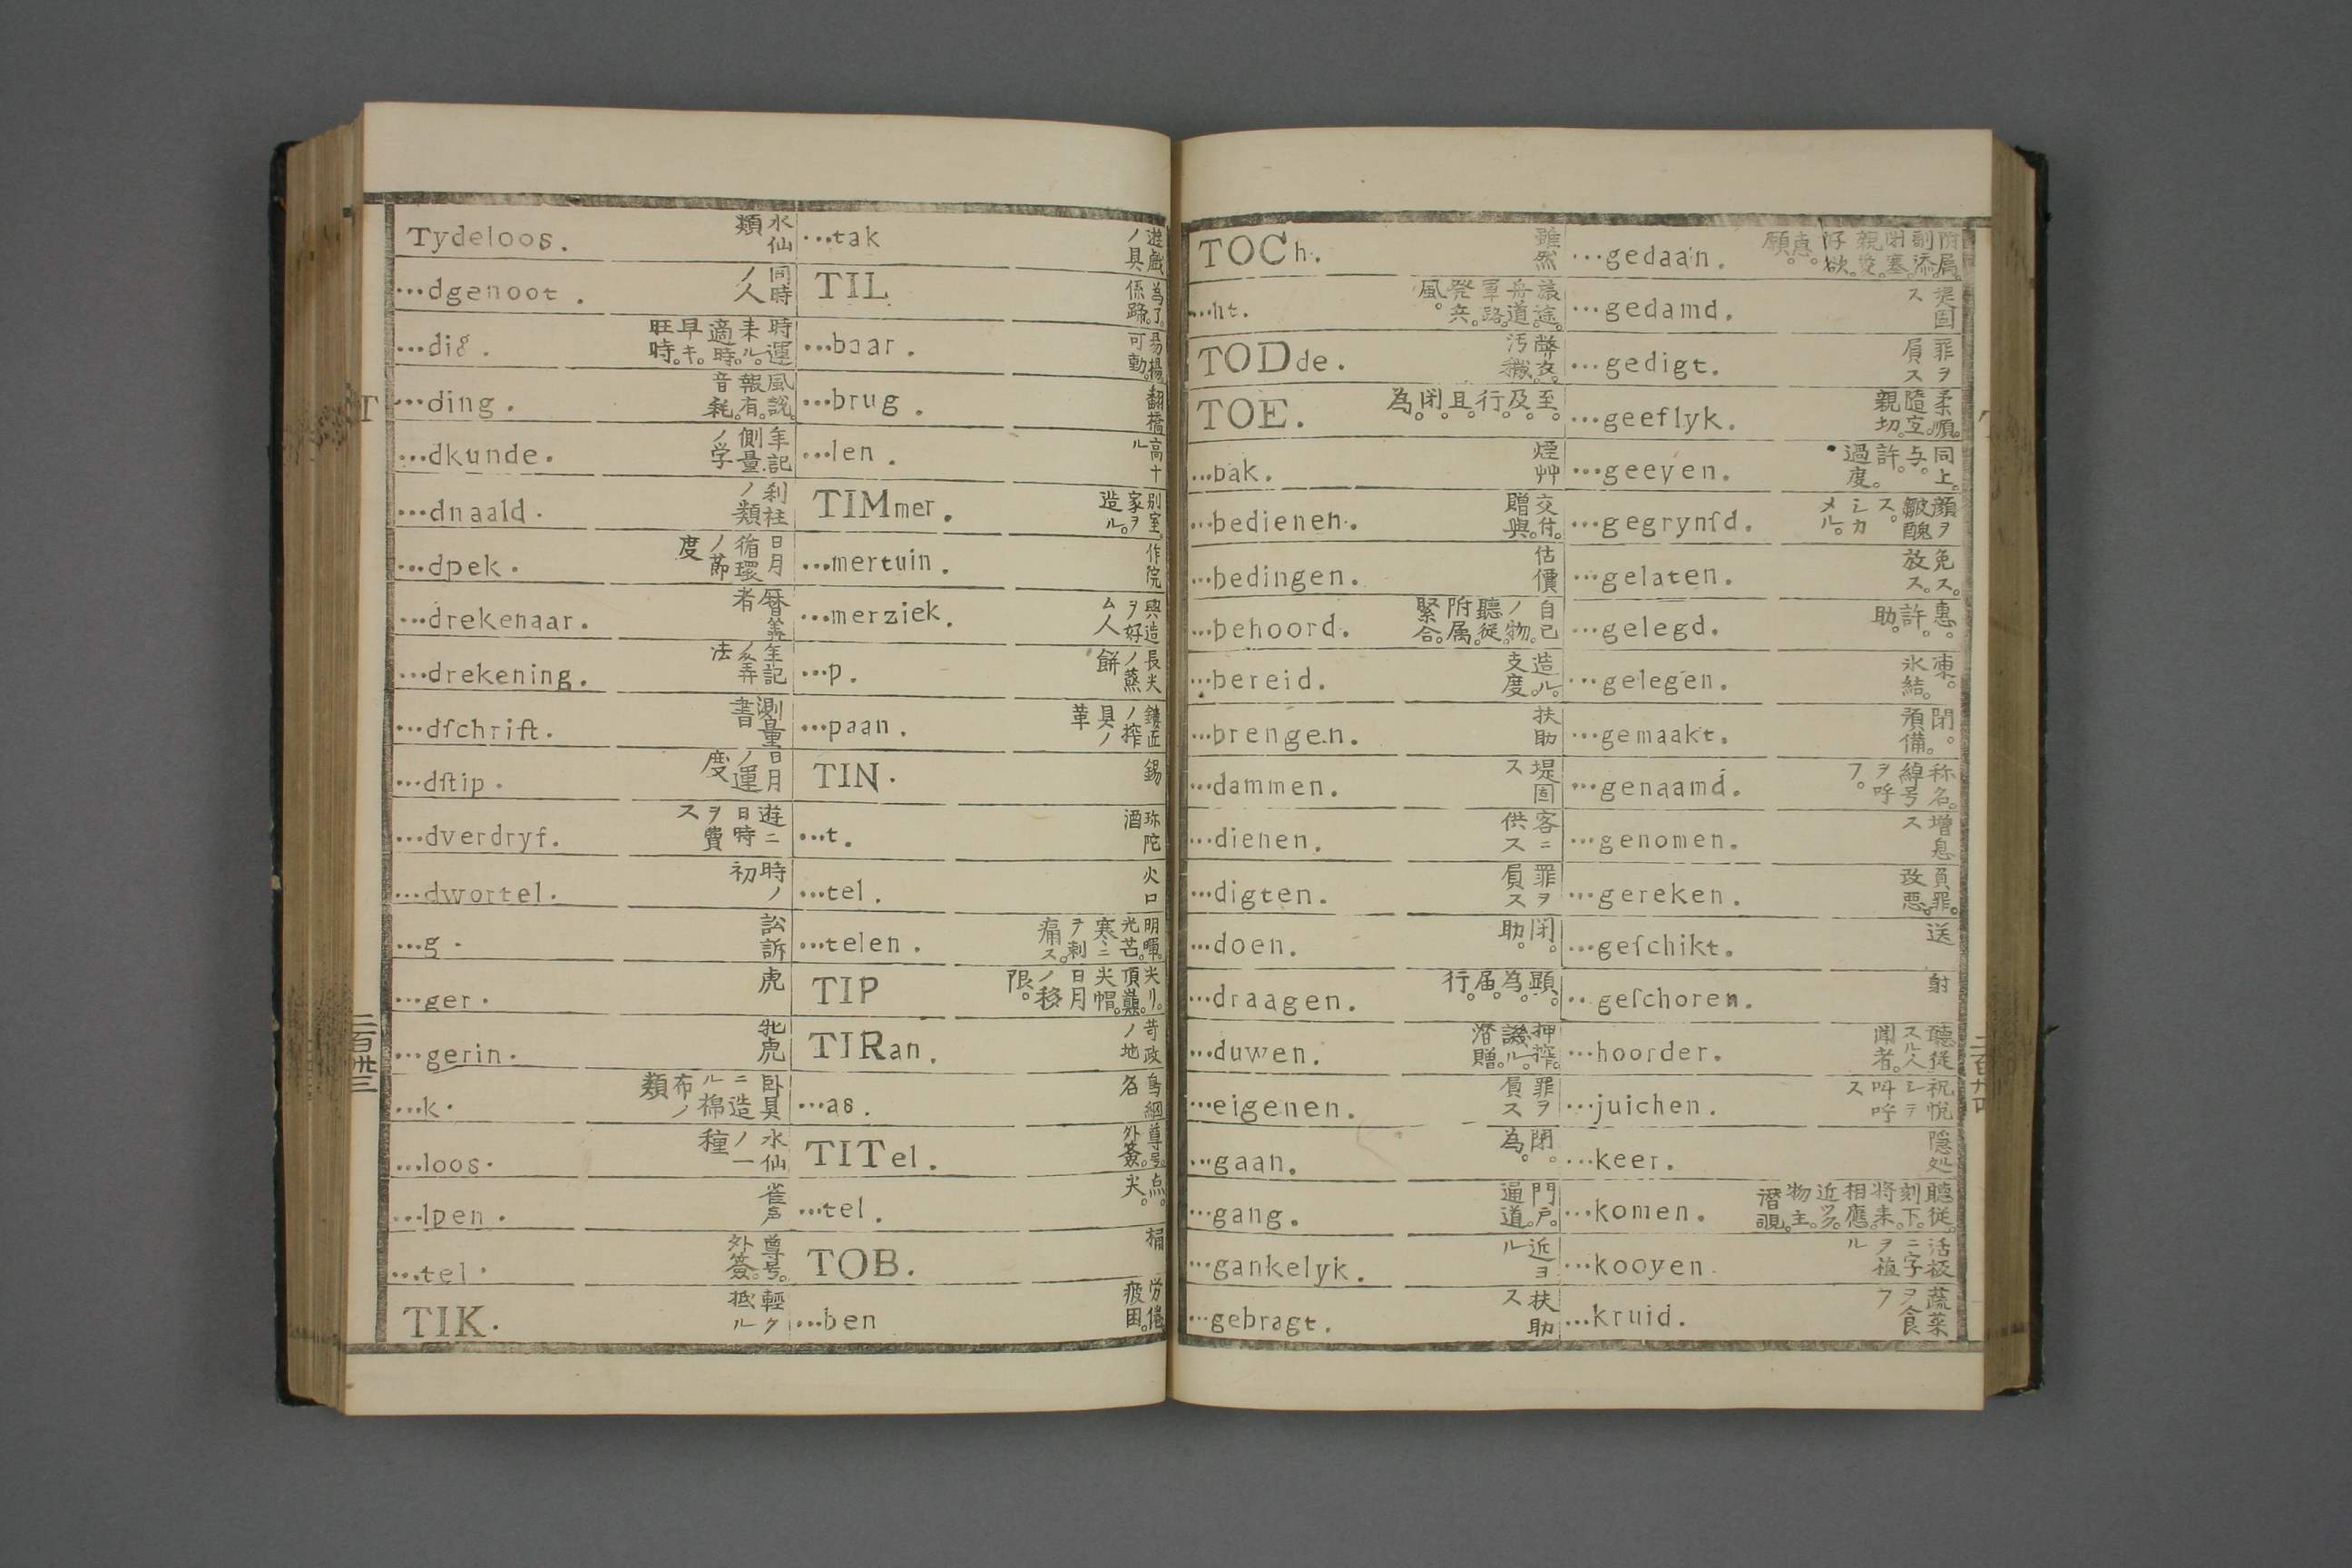 Tydeloos. 水仙類
...dgenoot. 同時ノ人
...dig. 時運来ル。適時。早キ。旺時。
...ding. 風説。報有。音耗。
...dkunde. 年記側量ノ学
...dnaald. 刹柱ノ類
...dpek. 日月循環ノ節度
...drekenaar. 暦算者
...drekening. 年記ノ算法
...dſchrift. 測量書
...dſtip. 日月ノ運度
...dverdryf. 遊ニ日時ヲ費ス
...dwortel. 時ノ初
...g. 訟訴
...ger. 虎
...gerin. 牝虎
...k. 臥具ニ造ル棉布ノ類
...loos. 水仙ノ一種
...lpen. 雀声
...tel. 尊号。外簽。
TIK. 軽ク抵ル
...tak 遊戯ノ具
TIL 為了。係蹄。
...baar. 易揚。可動。
...brug. 翻橋
...len. 高
TIMmer. 別室。家ヲ造ル。
...mertuin. 作院
...merziek. 興造ヲ好ム人
...p. 長尖ノ蒸餅
...paan. ノ搾具ノ革
TIN. 錫
...t. 珎陀酒
...tel. 火口
...telen. 明暉。光芒。寒ニヲ刺痛ス。
TIP 尖リ。頂。尖帽。日月ノ移限。
TIRan. 苛政ノ地
...as. 鳥網名
TITel. 尊号。外簽。
...tel. 点。尖。
TOB. 桶
...ben 労倦。疲困。
T
二百卅三
TOCh. 雖然
...ht. 旅途。舟道。軍路。発兵。風。
TODde. 弊衣。汚穢。
TOE. 至。及。行。且。閉。為。
...bak. 煙艸
...bedienen. 交付。贈與。
...bedingen. 估價
...behoord. 自己ノ物。聴従。附属。緊合。
...bereid. 造ル。支度。
...brengen. 扶助
...dammen. 堤固ス
...dienen. 客ニ供ス
...digten. 罪ヲ負ス
...doen. 閉。助。
...draagen. 顕。為。届。行。
...duwen. 押搾。譏ル。潜贈。
...eigenen. 罪ヲ負ス
...gaan. 閉。為。
...gang. 門戸。通道。
...gankelyk. 近ヨル
...gebragt. 扶助ス
...gedaan. 附属。副添。閉塞。親愛。好欲。恵。願。
...gedamd. 堤固ス
...gedigt. 罪ヲ負ス
...geeflyk. 柔順。随宜。親切。
...geeyen. 同上。与。許。過度。
...gegrynſd. 顔ヲ皺ス。醜シカメル。
...gelaten. 免ス。放ス。
...gelegd. 惠。許。助。
...gelegen. 凍。氷結。
...gemaakt. 閉。預備。
...genaamd. 称名。綽号ヲ呼フ。
...genomen. 増息ス
...gereken. 負罪。改悪。
...geſchikt. 送
...geſchoren. 射
...hoorder. 聴従スル人。聞者。
...juichen. 祝悦シテ叫呼ス
...keer. 隠処
...komen. 聴従。刻下。将来。相應。近ヅク。物主。潜覗。
...kooyen 活板ニ字ヲ植ル
...kruid. 蔬菜ヲ食フ